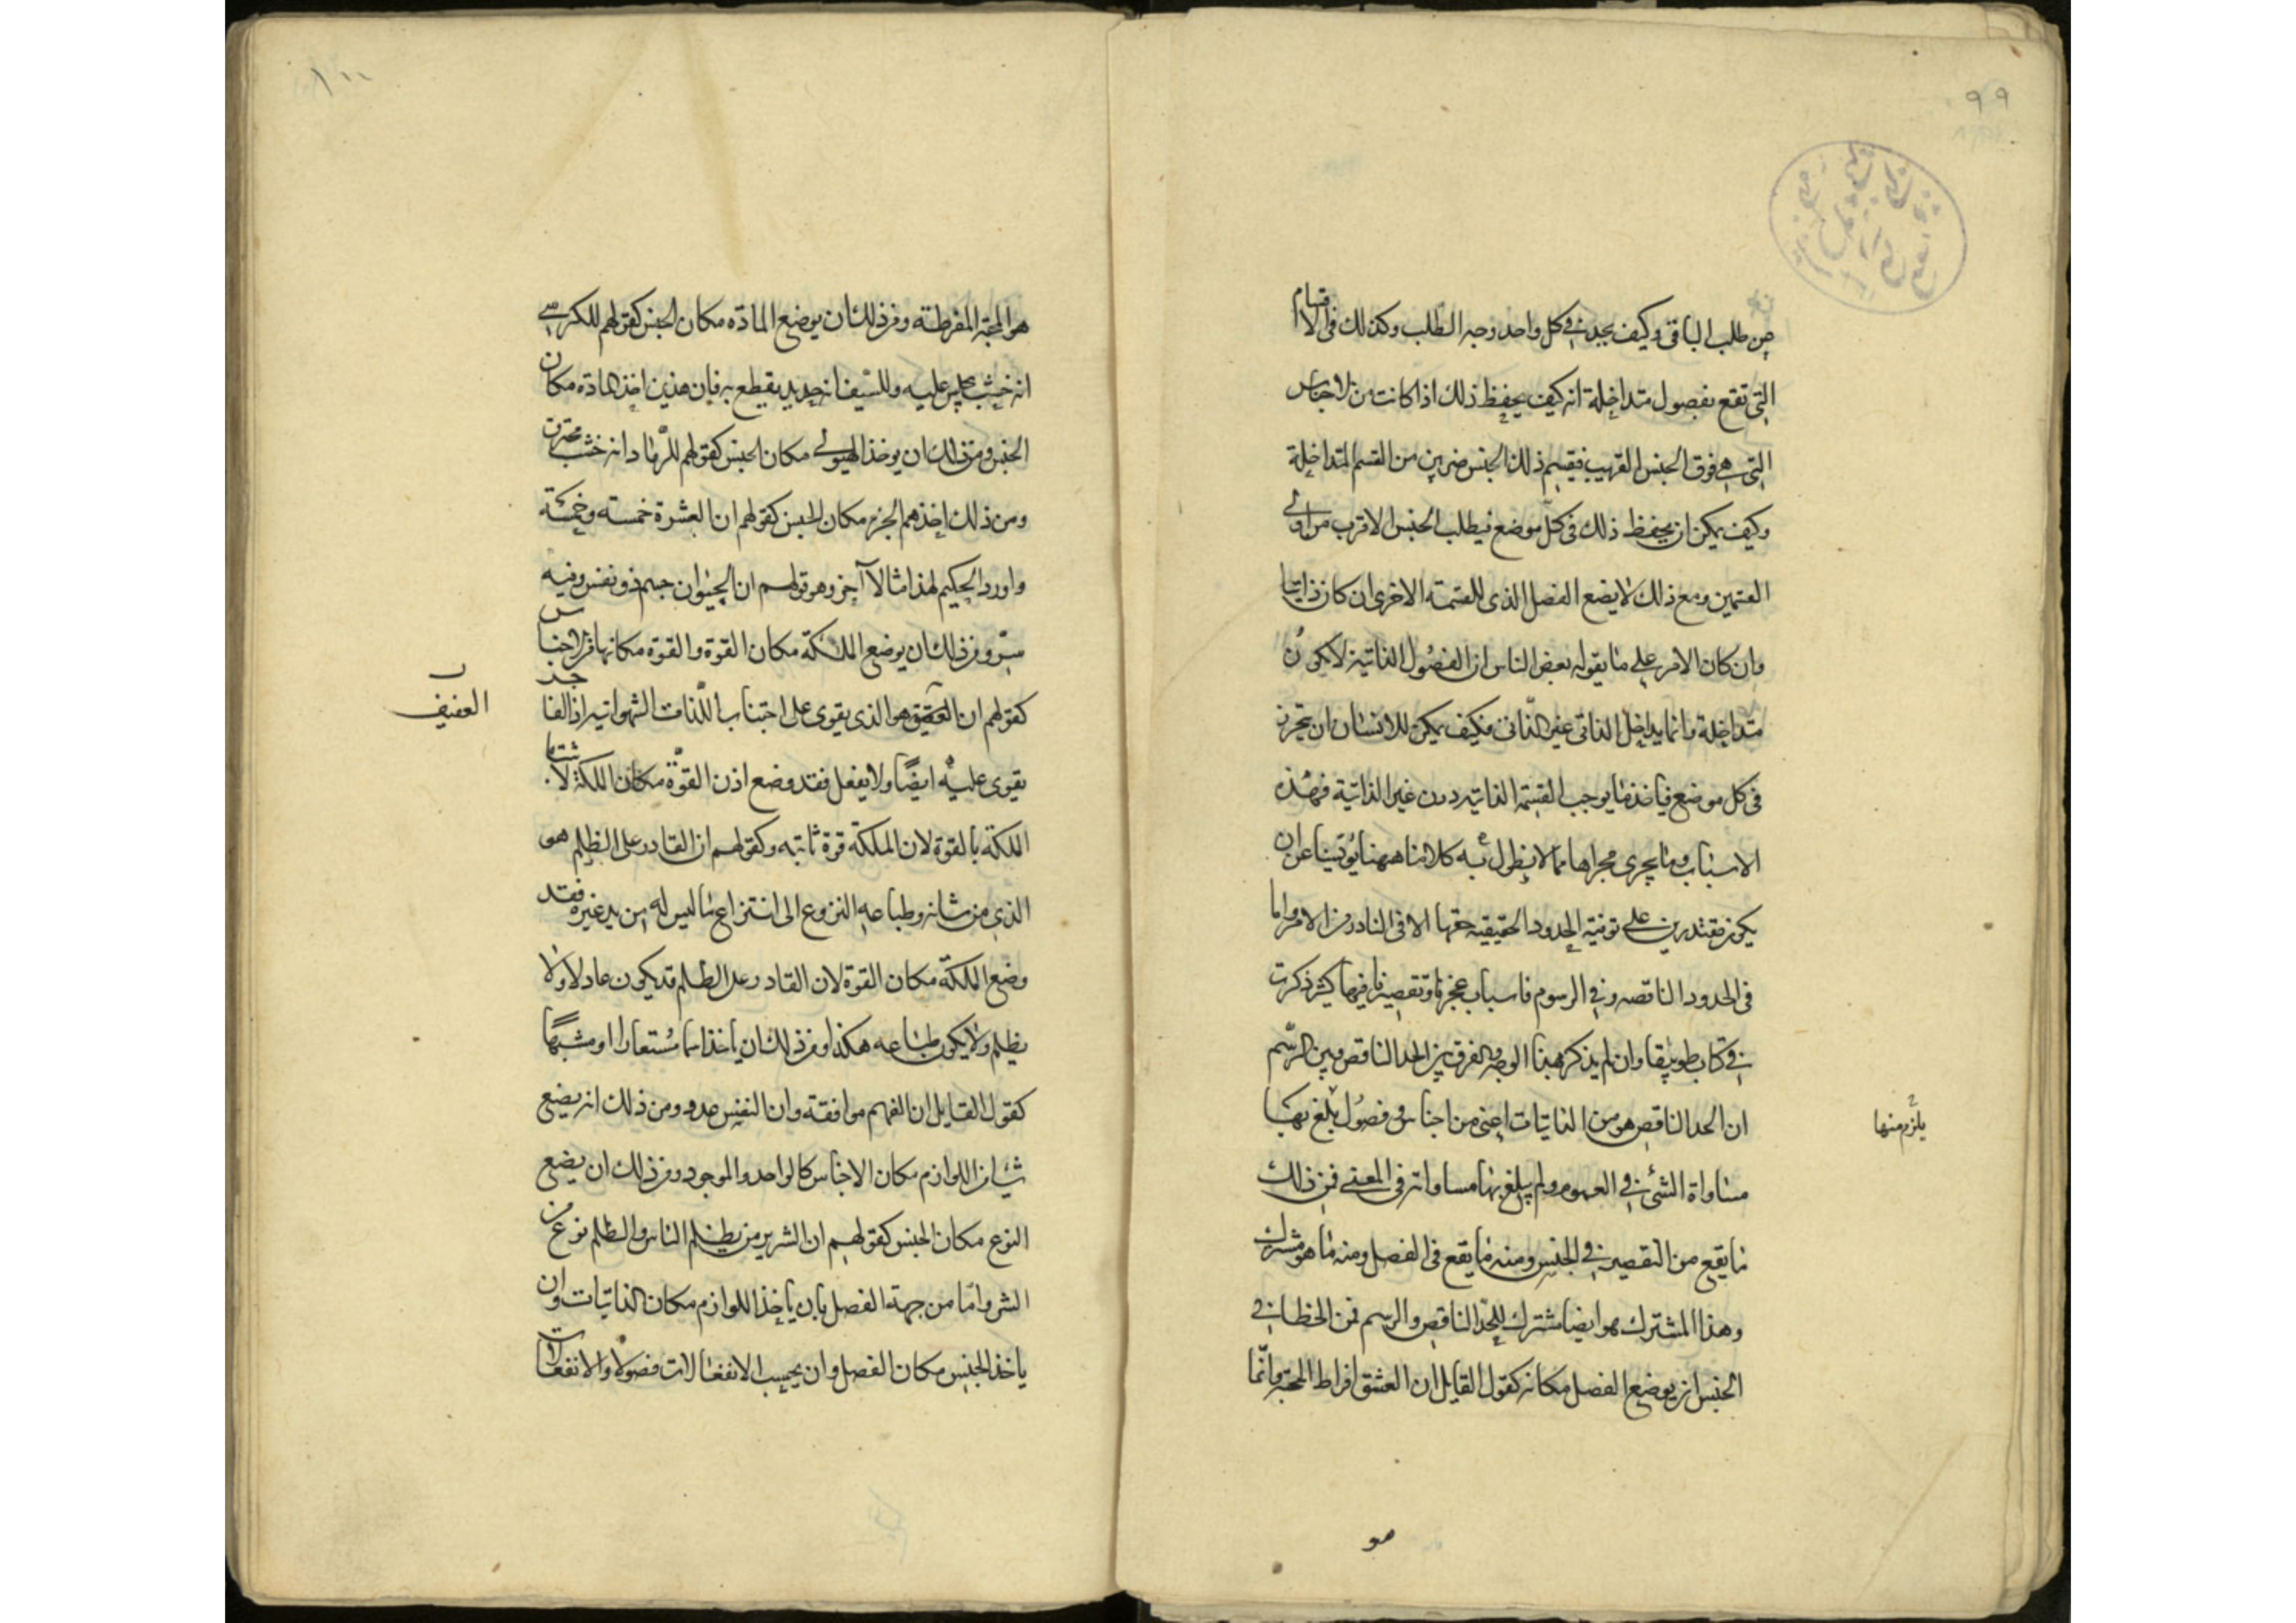 ٩٩
من طلب الباقى وكيف يجد فى كل واحد وجه الطلب وكذلك فى الاقسام
التى تقع بفصول متداخلة انه كيف يحفظ ذلك اذا كانت من الاجناس
التى هى فوق الجنس القريب فيقسم ذلك الجنس ضربين من القسم المتداخلة
وكيف يمكن ان يحفظ ذلك فى كل موضع فيطلب الجنس الاقرب من اوالى
القسمين ومع ذلك لا يضع الفصل الذى للقسمة الاخرى ان كان ذاتيا
وان كان الامر على ما يقوله بعض الناس ان الفصول الذاتية لا يكون
متداخلة وانما يداخل الذاتى غير الذاتى فكيف يمكن للانسان ان يتحرز
فى كل موضع فياخذ ما يوجب القسمة الذاتيه دون غير الذاتية فهذه
الاسباب وما يجرى مجراها مما لا يطول به كلامنا ههنا يؤيسنا عن ان
يكون مقتدرين على توفية الحدود الحقيقيه حقها الا فى النادر من الامر واما
فى الحدود الناقصه وفى الرسوم فاسباب عجزنا وتقصيرنا فيها كثير ذكرت
فى كتاب طوبيقا وان لم يذكر هذا الوجه والفرق بين الحد الناقص وبين الرسم
ان الحد الناقص هو من الذاتيات اعنى من اجناس وفصول بلغ بها
يلزم منها
مساواة الشئ فى العموم ولم يبلغ بها مساواته فى المعنى فمن ذلك
ما يقع من التقصير فى الجنس ومنه ما يقع فى الفصل ومنه ما هو مشترك
وهذا المشترك هو ايضا مشترك للحد الناقص والرسم فمن الخطا فى
الجنس ان يوضع الفصل مكانه كقول القايل ان العشق افراط المحبة وانما
هو
هو المحبة المفرطة ومن ذلك ان يوضع المادة مكان الجنس كقولهم للكرسى
انه خشب يجلس عليه وللسيف انه حديد يقطع به فان هذين اخذ المادة مكان
الجنس ومن ذلك ان يوخذ الهيولى مكان الجنس كقولهم للرماد انه خشب محترق
ومن ذلك اخذهم الجزء مكان الجنس كقولهم ان العشرة خمسة وخمسة
واورد الحكيم لهذا مثالا آخر وهو قولهم ان الحيوان جسم ذو نفس وفيه
سر ومن ذلك ان يوضع الملكة مكان القوة والقوة مكانها فى الاجناس
كقولهم ان العفيف هو الذى يقوى على اجتناب اللذات الشهوانيه اذ الفاجر
العفيف
يقوى عليه ايضا ولا يفعل فقد وضع اذن القوة مكان الملكة لاشتباه
الملكة بالقوة لان الملكة قوة ثابتة وكقولهم ان القادر على الظلم هو
الذى من شانه وطباعه النزوع الى انتزاع ما ليس له من يد غيره فقد
وضع الملكة مكان القوة لان القادر على الظلم قد يكون عادلا ولا
يظلم ولا يكون طباعه هكذا ومن ذلك ان ياخذ اسما مستعارا او مشبها
كقول القايل ان الفهم موافقة وان النفس عدد ومن ذلك انه يضع
شيئا من اللوازم مكان الاجناس كالواحد والموجود ومن ذلك ان يضع
النوع مكان الجنس كقولهم ان الشرير من يظلم الناس والظلم نوع من
الشر واما من جهة الفصل بان ياخذ اللوازم مكان الذاتيات وان
ياخذ الجنس مكان الفصل وان يحسب الانفعالات فصولا والانفعالات